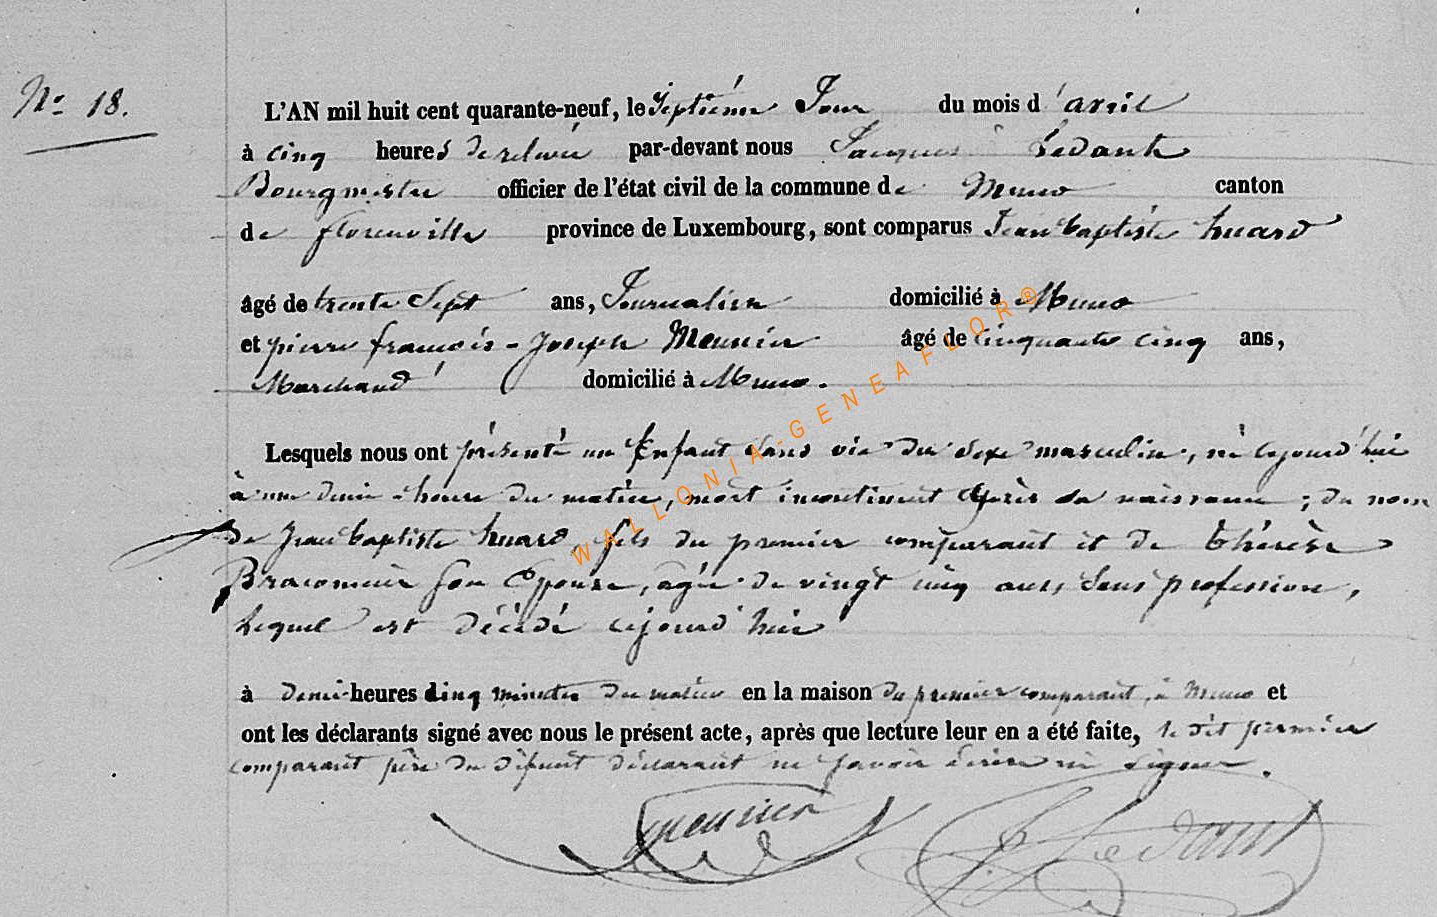 No 18.
L'AN mil huit cent quarante-neuf, le Septième Jour du mois d'avril
à cinq heures de relevée par-devant nous Jacques Ledant
Bourgmestre officier de l'état civil de la commune de Muno canton
de florenville province de Luxembourg, sont comparus Jean baptiste huard
âgé de trente Sept ans, Journalier domicilié à Muno
et pierre francois-Joseph Meunier âgé de cinquante cinq ans,
Marchand domicilié à Muno.
Lesquels nous ont présenté un Enfant sans vie du sexe masculin, né cejourd'hui
à une demie-heure du matin, mort incontinent après sa naissance; du nom
de Jean baptiste huard, fils du premier comparant et de thérèse
Braconnier son Epouse, agée de vingt cinq ans, Sans profession,
lequel est décédé cejourd'hui
à demie-heures cinq minutes du matin en la maison du premier comparant, à Muno et
ont les déclarants signé avec nous le présent acte, après que lecture leur en a été faite, le dit premier
comparant père du défunt déclarant ne savoir Ecrire ni Signer.
Meunier
J. Ledant
WALLONIA-GENEAFLOR®